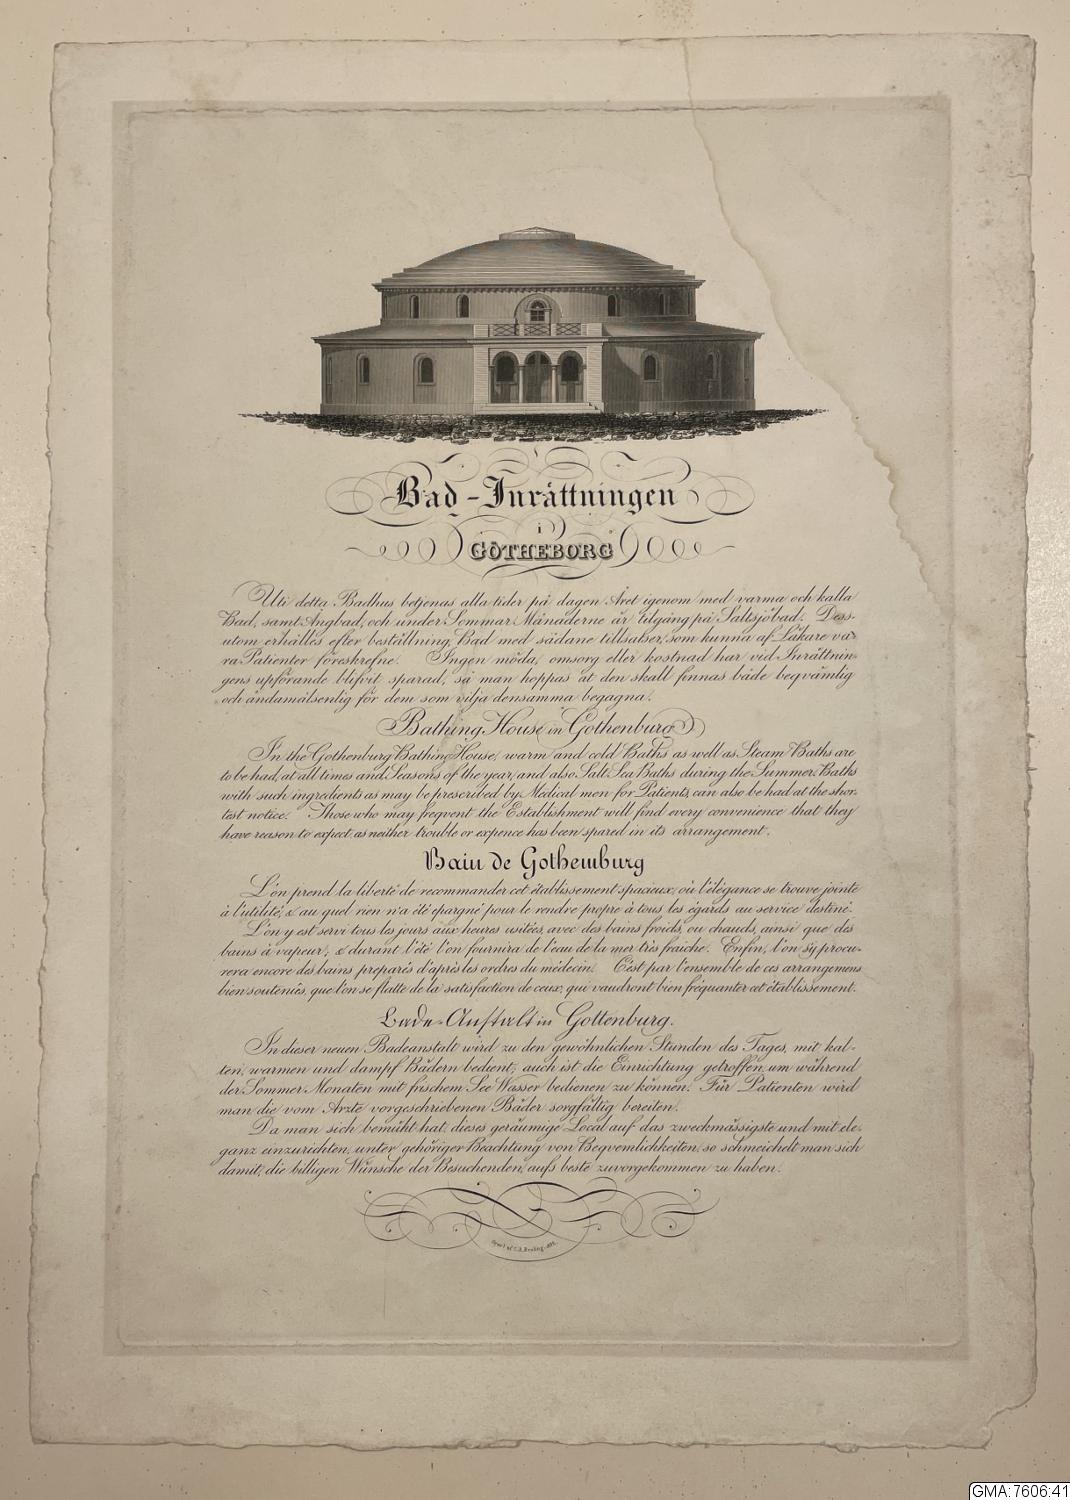 Bad-Inråttningen
i
GÖTHEBORG
Uti detta Badhus betjenas alla tider på dagen Året igenom med varma och kalla
Bad, samt Ångbad, och under Sommar Månaderne är tilgång på Saltsjöbad. Dess-
utom erhålles efter beställning, Bad med sådane tillsatser, som kunna af Läkare va-
ra Patienter föreskrefne. Ingen möda, omsorg eller kostnad har vid Inrättnin-
gens upförande blifvit sparad, så man hoppas at den skall finnas både beqvämlig
och ändamålsenlig för dem som vilja densamma begagna.
Bathing House in Gothenburg
In the Gothenburg Bathing House, warm and cold Baths as well as Steam Baths are
to be had, at all times and Seasons of the year, and also Salt Sea Baths during the Summer. Baths
with such ingredients as may be prescribed by Medical men for Patients, can also be had at the shor-
test notice. Those who may freqvent the Establishment will find every convenience that they
have reason to expect, as neither trouble or expence has been spared in its arrangement.
Bain de Gothemburg
L'on prend la liberté de recommander cet établissement spacieux, où l'élégance se trouve jointe
à l'utilité, & au quel rien n'a été epargné pour le rendre propre à tous les égards au service destiné.
L'on y est servi tous les jours aux heures usitées, avec des bains froids, ou chauds, ainsi que des
bains à vapeur, & durant l'été l'on fournira de l'eau de la mer très fraiche. Enfin, l'on s'y procu-
rera encore des bains preparés d'après les ordres du médecin. C'est par l'ensemble de ces arrangemens
bien soutenûs, que l'on se flatte de la satisfaction de ceux, qui vaudront bien fréquanter cet établissement.
Bade-Anstalt in Gottenburg.
In dieser neuen Badeanstalt wird zu den gewöhnlichen Stunden des Tages, mit kal-
ten, warmen und dampf Bädern bedient, auch ist die Einrichtung getroffen, um während
der Sommer-Monaten mit frischem See Wasser bedienen zu können. Für Patienten wird
man die vom Arzte vorgeschriebenen Bäder sorgfältig bereiten.
Da man sich bemüht hat, dieses geräumige Local auf das zweckmässigste und mit ele-
ganz einzurichten, unter gehöriger Beachtung von Beqvemlichkeiten, so schmeichelt man sich
damit, die billigen Wünsche der Besuchenden, aufs beste zuvorgekommen zu haben.
GMA:7606:41